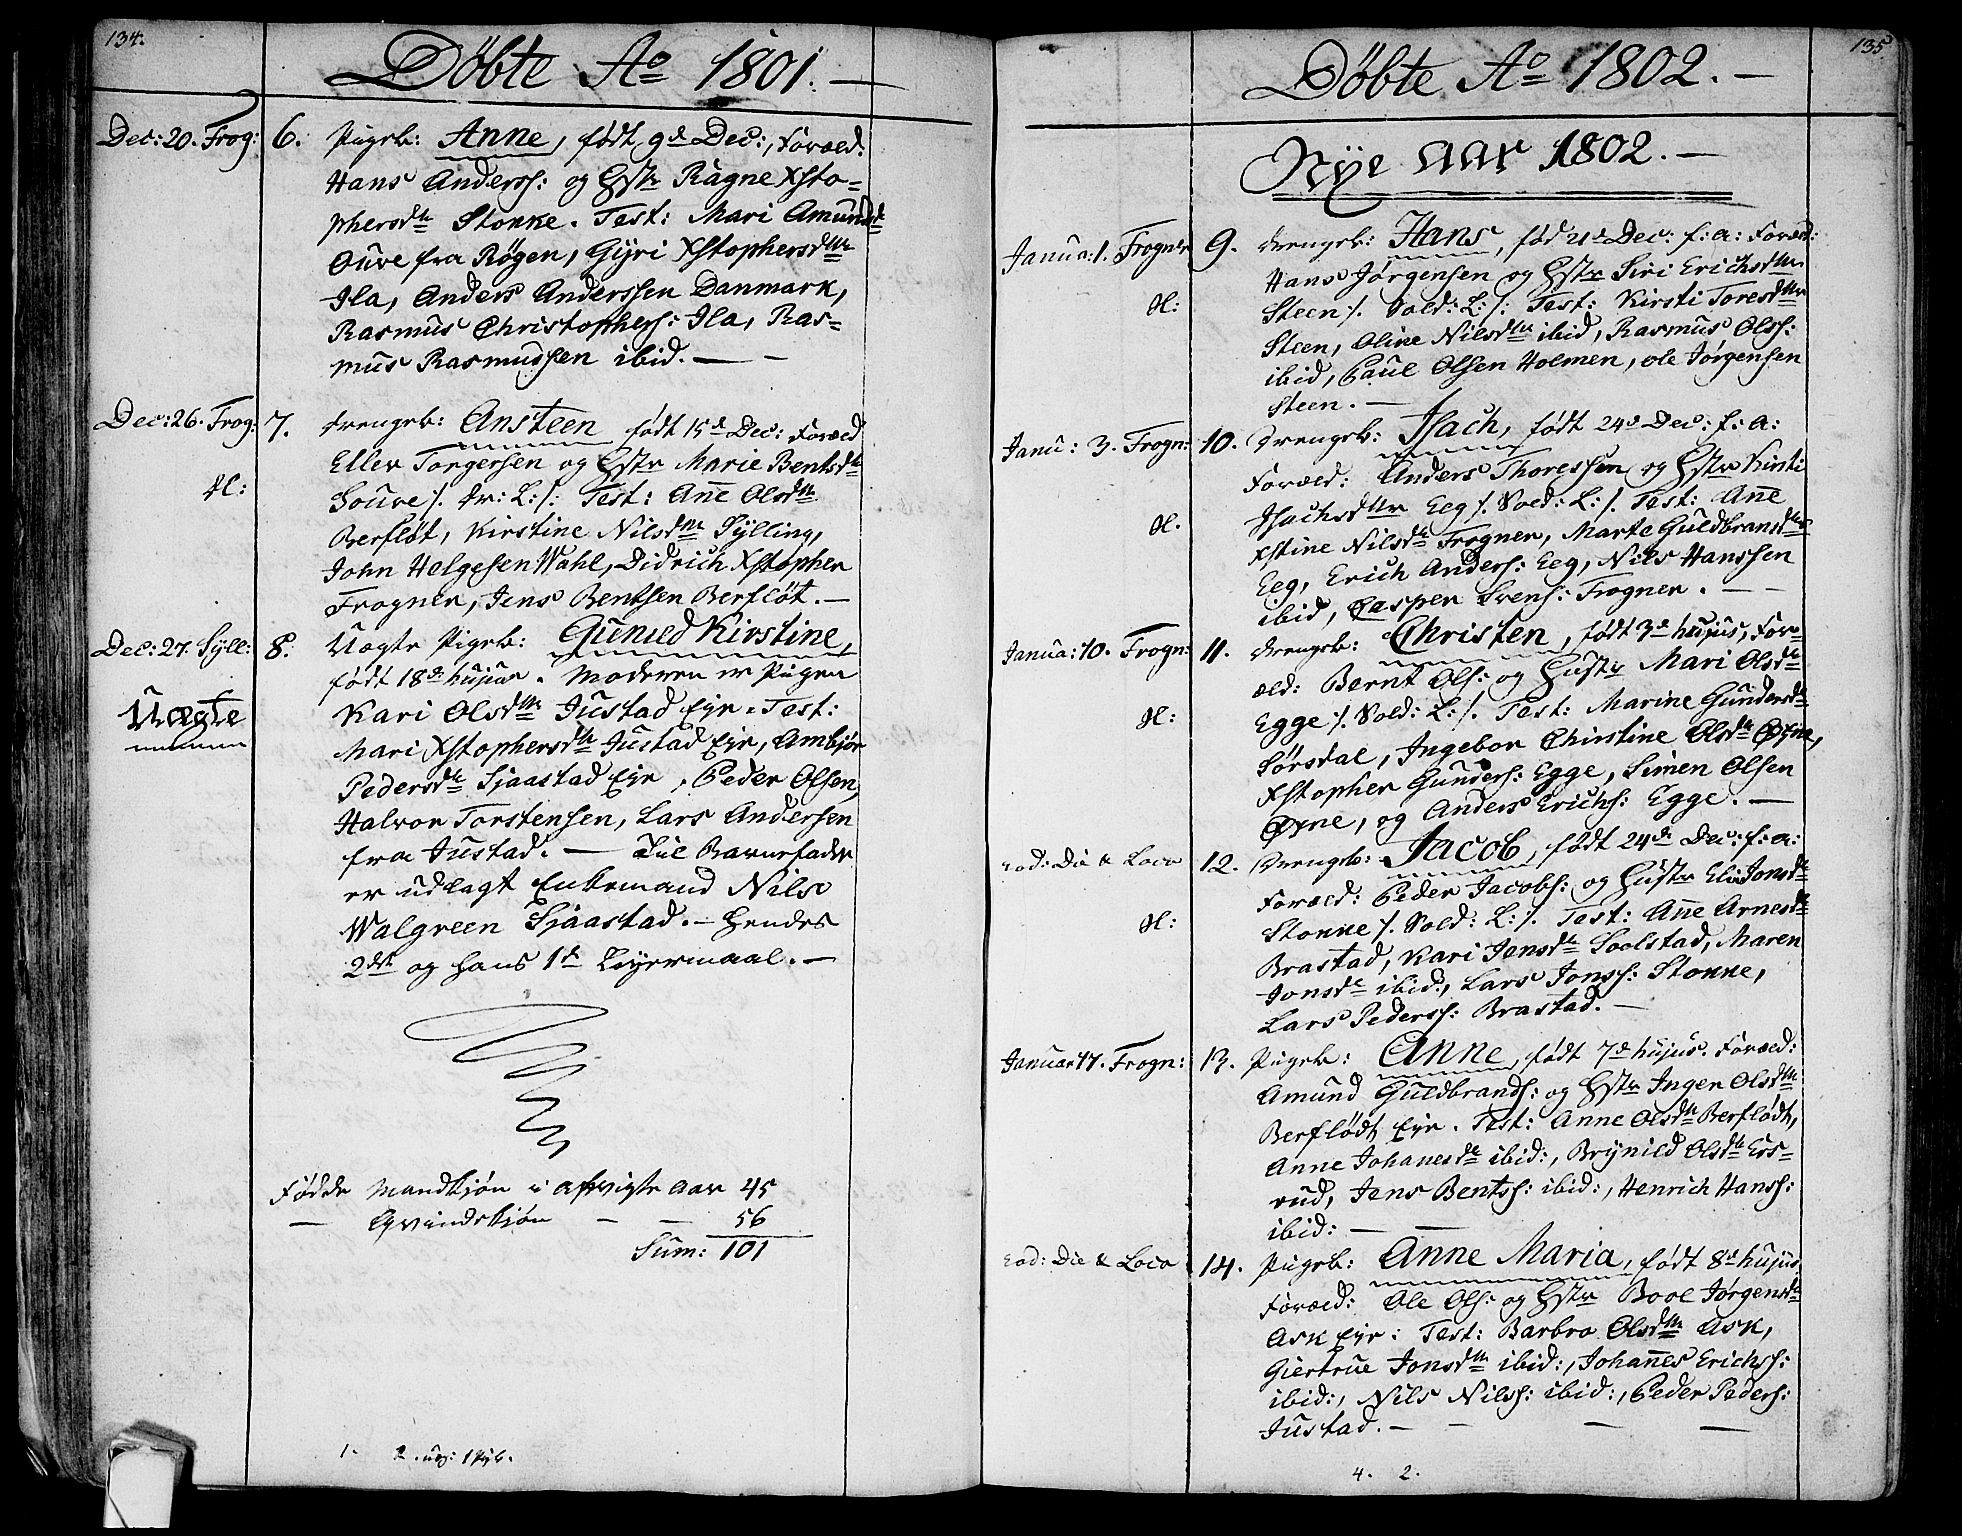 134.
Døbte Ao 1801.
Dec: 20. Frog: 6. Pigeb: Anne, født 9d Dec:, Foræld:
Hans Anderss: og Hstr Ragne Xsto-
phersdtr Stokke. Test: Mari Amundsd
Ouve fra Røgen, Gyri Xstophersdtr
Ila, Anders Anderssen Danmark,
Rasmus Christophers: Ila, Ras-
mus Rasmussen ibid.
Dec: 26. Frog: 7. Drengeb: Ansteen født 15d Dec: Foræld
Eller Torgersen og Hstr Marie Bentsdtr
H: Souve /. Dr: L: /. Test: Ane Olsdtr
Berfløt, Kirstine Nilsdtr Sylling,
John Helgesen Wahl, Didrich Xstopher
Frogner, Jens Bentsen Berfløt.
Dec: 27. Syll: 8. Uægte Pigeb: Gunild Kirstine,
født 18d hujus. Moderen er Pigen
Uægte
Kari Olsdtr Justad Eye. Test:
Mari Xstophersdtr Justad Eye, Ambjør
Pedersdtr Sjaastad Eye, Peder Olsen,
Halvor Torstensen, Lars Andersen
fra Justad. — Til Barnefader
er udlagt Enkemand Nils
Walgreen Sjaastad. — Hendes
2det og hans 1te Leyermaal. —
Fødde Mandkjøn i afvigte Aar 45
— Qvindekjøn — — 56
Sum: 101
1. 2.
135.
Døbte Ao 1802.
Nye Aar 1802.
Janua: 1. Frogner 9. Drengeb: Hans, fød 21d Dec: f: a: Foræld:
Hans Jørgensen og Hstr Siri Erichsdtr
H: Steen /. Sold: L: /. Test: Kirsti Toresdtr
Steen, Oline Nilsdtr ibid, Rasmus Olss:
ibid, Paul Olsen Holmen, Ole Jørgensen
Steen.
Janu: 3. Frogn: 10. Drengeb: Isach, født 24d Dec: f: a:
Foræld: Anders Thoressen og Hstr Kirsti
Isachsdtr Eeg /. Sold: L: /. Test: Ane
H. Xstine Nilsdtr Frogner, Marte Guldbransdtr
Eeg, Erich Anders: Eeg, Nils Hanssen
ibid, Casper Svens: Frogner.
Janua: 10. Frogn: 11. Drengeb: Christen, født 3d hujus, For-
æld: Bernt Ols: og Hustr Mari Olsdtr
H: Egge /. Sold: L: /. Test: Marine Gundersdtr
Sørsdal, Ingebor Chirstine Olsdtr Øfne,
Xstopher Gunders: Egge, Simen Olsen
Øfne, og Anders Erichs: Egge.
eod: Die & Loco 12. Drengeb: Jacob, født 24d Dec: f: a:
Foræld: Peder Jacobs: og Hustr Eli Jonsdtr
H: Stokke /. Sold: L: /. Test: Ane Arnesdtr
Brastad, Kari Jensdtr Soolstad, Maren
Jonsdtr ibid:, Lars Jonss: Stokke,
Lars Pederss: Brastad.
Januar 17. Frogn: 13. Pigeb: Anne, født 7d hujus. Foræld:
Amund Guldbrands: og Hstr Inger Olsdtr
Berflødt Eye. Test: Anne Olsdtr Berflødt,
Anne Johanesdtr ibid:, Brynild Olsdtr Ers-
rud, Jens Bentss: ibid:, Henrich Hanss:
ibid:
eod: Die & Loco 14. Pigeb: Anne Maria, født 8d hujus.
Foræld: Ole Ols: og Hstr Boel Jørgensdtr
Ask Eye: Test: Barbro Olsdtr Ask,
Giertrue Jonsdtr ibid:, Johannes Erichss:
ibid:, Nils Nilss: ibid:, Peder Peders:
Justad.
4. 2.